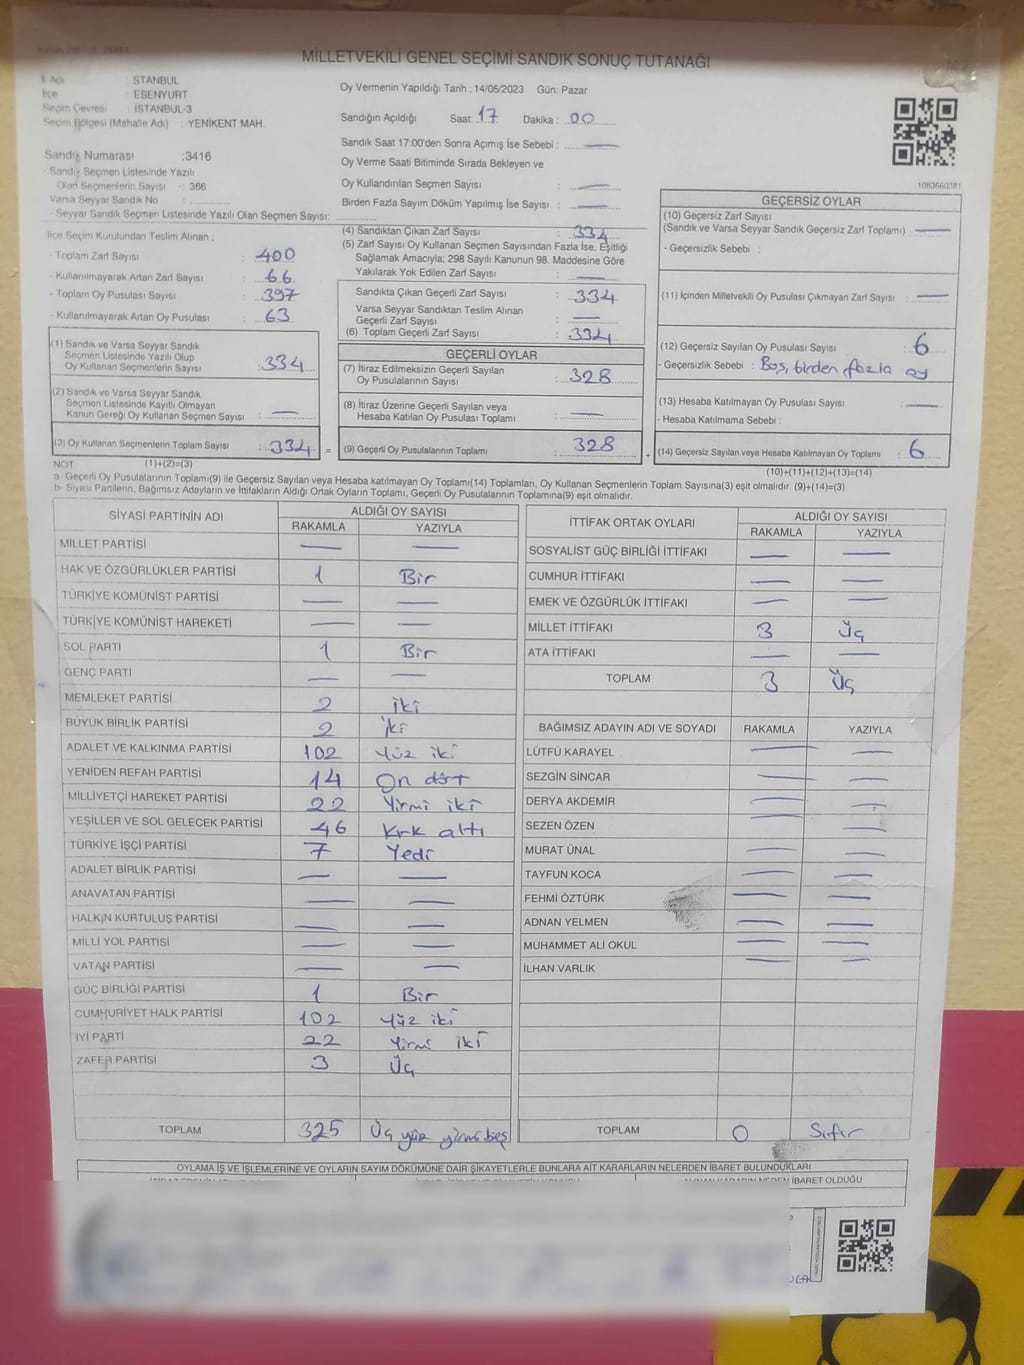 MİLLETVEKİLİ GENEL SEÇİMİ SANDIK SONUÇ TUTANAĞI
İl Adı : İSTANBUL
İlçe : ESENYURT
Seçim Çevresi : İSTANBUL-3
Seçim Bölgesi (Mahalle Adı) : YENİKENT MAH.
Sandık Numarası :3416
- Sandık Seçmen Listesinde Yazılı
Olan Seçmenlerin Sayısı : 366
Varsa Seyyar Sandık No :
- Seyyar Sandık Seçmen Listesinde Yazılı Olan Seçmen Sayısı:
İlçe Seçim Kurulundan Teslim Alınan ;
- Toplam Zarf Sayısı : 400
- Kullanılmayarak Artan Zarf Sayısı : 66
- Toplam Oy Pusulası Sayısı : 397
- Kullanılmayarak Artan Oy Pusulası : 63
(1) Sandık ve Varsa Seyyar Sandık
Seçmen Listesinde Yazılı Olup
Oy Kullanan Seçmenlerin Sayısı : 334
(2) Sandık ve Varsa Seyyar Sandık
Seçmen Listesinde Kayıtlı Olmayan
Kanun Gereği Oy Kullanan Seçmen Sayısı : —
(3) Oy Kullanan Seçmenlerin Toplam Sayısı : 334 =
Oy Vermenin Yapıldığı Tarih : 14/05/2023 Gün: Pazar
Sandığın Açıldığı Saat: 17 Dakika : 00
Sandık Saat 17:00'den Sonra Açımış İse Sebebi : —
Oy Verme Saati Bitiminde Sırada Bekleyen ve
Oy Kullandırılan Seçmen Sayısı : —
Birden Fazla Sayım Döküm Yapılmış İse Sayısı : —
(4) Sandıktan Çıkan Zarf Sayısı : 334
(5) Zarf Sayısı Oy Kullanan Seçmen Sayısından Fazla İse, Eşitliği
Sağlamak Amacıyla; 298 Sayılı Kanunun 98. Maddesine Göre
Yakılarak Yok Edilen Zarf Sayısı : —
Sandıkta Çıkan Geçerli Zarf Sayısı : 334
Varsa Seyyar Sandıktan Teslim Alınan
Geçerli Zarf Sayısı : —
(6) Toplam Geçerli Zarf Sayısı : 334
GEÇERLİ OYLAR
(7) İtiraz Edilmeksizin Geçerli Sayılan
Oy Pusulalarının Sayısı : 328
(8) İtiraz Üzerine Geçerli Sayılan veya
Hesaba Katılan Oy Pusulası Toplamı : —
(9) Geçerli Oy Pusulalarının Toplamı : 328 +
1083660381
GEÇERSİZ OYLAR
(10) Geçersiz Zarf Sayısı
(Sandık ve Varsa Seyyar Sandık Geçersiz Zarf Toplamı) : —
- Geçersizlik Sebebi :
(11) İçinden Milletvekili Oy Pusulası Çıkmayan Zarf Sayısı : —
(12) Geçersiz Sayılan Oy Pusulası Sayısı : 6
- Geçersizlik Sebebi : Boş, birden fazla oy
(13) Hesaba Katılmayan Oy Pusulası Sayısı : —
- Hesaba Katılmama Sebebi :
(14) Geçersiz Sayılan veya Hesaba Katılmayan Oy Toplamı : 6
NOT (1)+(2)=(3) (10)+(11)+(12)+(13)=(14)
a- Geçerli Oy Pusulalarının Toplamı(9) ile Geçersiz Sayılan veya Hesaba katılmayan Oy Toplamı(14) Toplamları, Oy Kullanan Seçmenlerin Toplam Sayısına(3) eşit olmalıdır. (9)+(14)=(3)
b- Siyasi Partilerin, Bağımsız Adayların ve İttifakların Aldığı Ortak Oyların Toplamı, Geçerli Oy Pusulalarının Toplamına(9) eşit olmalıdır.
SİYASİ PARTİNİN ADI ALDIĞI OY SAYISI
RAKAMLA YAZIYLA
MİLLET PARTİSİ — —
HAK VE ÖZGÜRLÜKLER PARTİSİ 1 Bir
TÜRKİYE KOMÜNİST PARTİSİ — —
TÜRKİYE KOMÜNİST HAREKETİ — —
SOL PARTİ 1 Bir
GENÇ PARTİ — —
MEMLEKET PARTİSİ 2 iki
BÜYÜK BİRLİK PARTİSİ 2 iki
ADALET VE KALKINMA PARTİSİ 102 Yüz iki
YENİDEN REFAH PARTİSİ 14 On dört
MİLLİYETÇİ HAREKET PARTİSİ 22 Yirmi iki
YEŞİLLER VE SOL GELECEK PARTİSİ 46 Kırk altı
TÜRKİYE İŞÇİ PARTİSİ 7 Yedi
ADALET BİRLİK PARTİSİ — —
ANAVATAN PARTİSİ — —
HALKIN KURTULUŞ PARTİSİ — —
MİLLİ YOL PARTİSİ — —
VATAN PARTİSİ — —
GÜÇ BİRLİĞİ PARTİSİ 1 Bir
CUMHURİYET HALK PARTİSİ 102 Yüz iki
İYİ PARTİ 22 Yirmi iki
ZAFER PARTİSİ 3 Üç
TOPLAM 325 Üç yüz yirmi beş
İTTİFAK ORTAK OYLARI ALDIĞI OY SAYISI
RAKAMLA YAZIYLA
SOSYALİST GÜÇ BİRLİĞİ İTTİFAKI — —
CUMHUR İTTİFAKI — —
EMEK VE ÖZGÜRLÜK İTTİFAKI — —
MİLLET İTTİFAKI 3 Üç
ATA İTTİFAKI — —
TOPLAM 3 Üç
BAĞIMSIZ ADAYIN ADI VE SOYADI RAKAMLA YAZIYLA
LÜTFÜ KARAYEL — —
SEZGİN SİNCAR — —
DERYA AKDEMİR — —
SEZEN ÖZEN — —
MURAT ÜNAL — —
TAYFUN KOCA — —
FEHMİ ÖZTÜRK — —
ADNAN YELMEN — —
MUHAMMET ALİ OKUL — —
İLHAN VARLIK
TOPLAM 0 Sıfır
OYLAMA İŞ VE İŞLEMLERİNE VE OYLARIN SAYIM DÖKÜMÜNE DAİR ŞİKAYETLERLE BUNLARA AİT KARARLARIN NELERDEN İBARET BULUNDUKLARI
İBARET OLDUĞU